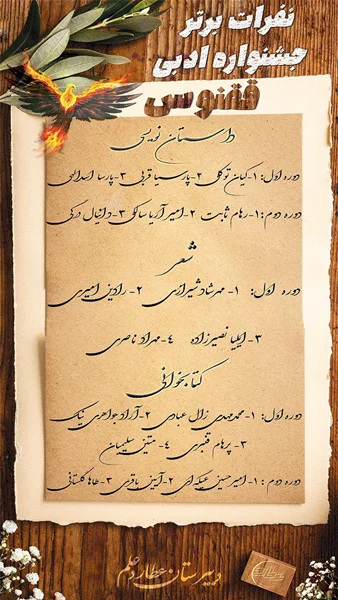 نفرات برتر
جشنواره ادبی
ققنوس
داستان نویسی
دوره اول: ۱- کیان توکلی ۲- پارسیا قربی ۳- پارسا اسدالهی
دوره دوم: ۱- رهام ثابت ۲- امیر آریا سالکی ۳- دانیال درکی
شعر
دوره اول: ۱- مهرشاد شیرازی ۲- رادین امیری
۳- ایلیا نصیرزاده ۴- مهراد ناصری
کتابخوانی
دوره اول: ۱- محمدمهدی زال عبادی ۲- آراد جواهری نیک
۳- پرهام قنبری ۴- متین سلیمیان
دوره دوم: ۱- امیرحسین ۲- آیین باقری ۳- طاها گلستانی
دبیرستان عطار و علم